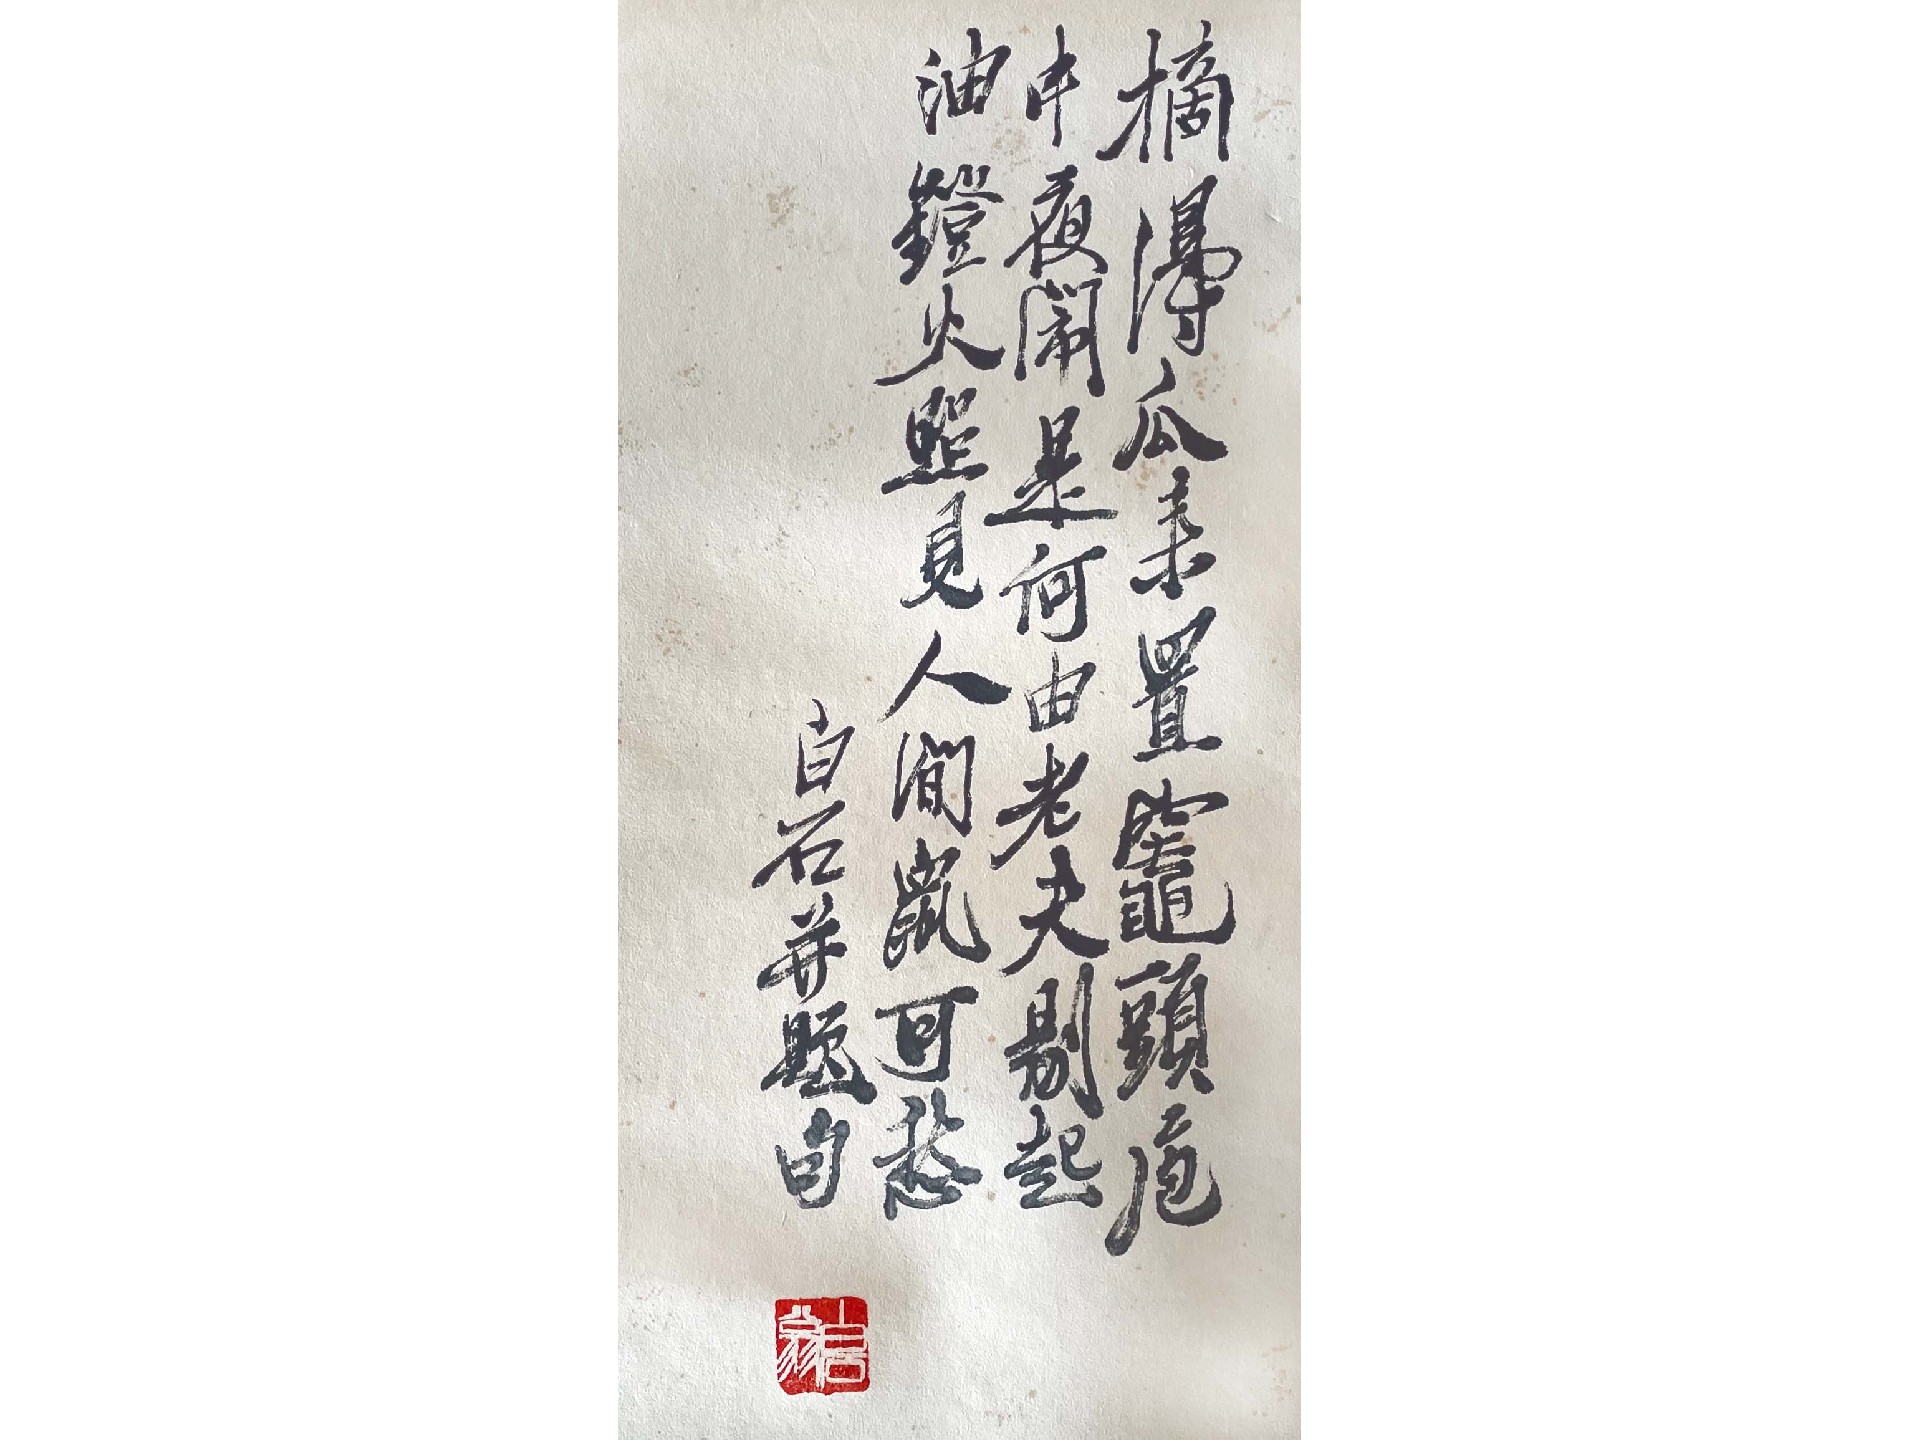 摘得瓜來置竈頭庖
中夜鬧是何由老夫剔起
油鐙火照見人間鼠可愁
白石并題句